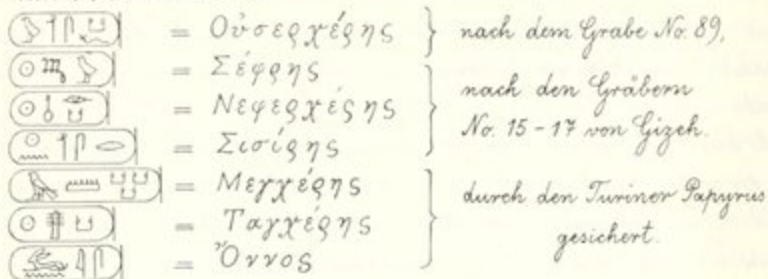 = Οὐσερχέρης } nach dem Grabe No. 89,
= Σέφρης
= Νεφερχέρης
= Σισίρης
} nach den Gräbern
No. 15 - 17 von Gizeh.
= Μεγχέρης
= Ταγχέρης
= Ὄννος
} durch den Turiner Papyrus
gesichert.